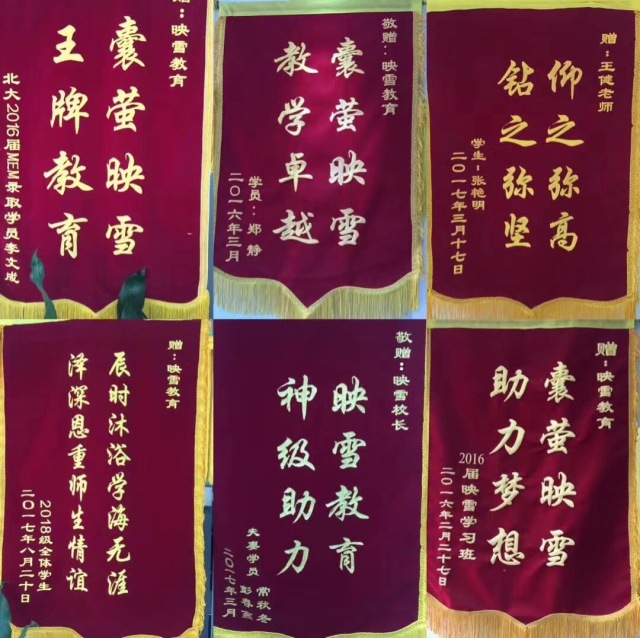 赠：映雪教育
囊萤映雪
王牌教育
北大2016届MEM录取学员李文成
敬赠：映雪教育
囊萤映雪
教学卓越
学员：郑静
二〇一六年三月
赠：王健老师
仰之弥高
钻之弥坚
学生：张艳明
二〇一七年三月十七日
赠：映雪教育
辰时沐浴学海无涯
泽深恩重师生情谊
2018级全体学生
二〇一七年八月二十日
敬赠：映雪校长
映雪教育
神级助力
夫妻学员 常秋冬
彭春燕
二〇一七年三月
赠：映雪教育
囊萤映雪
助力梦想
2016届映雪学习班
二〇一六年二月二十七日